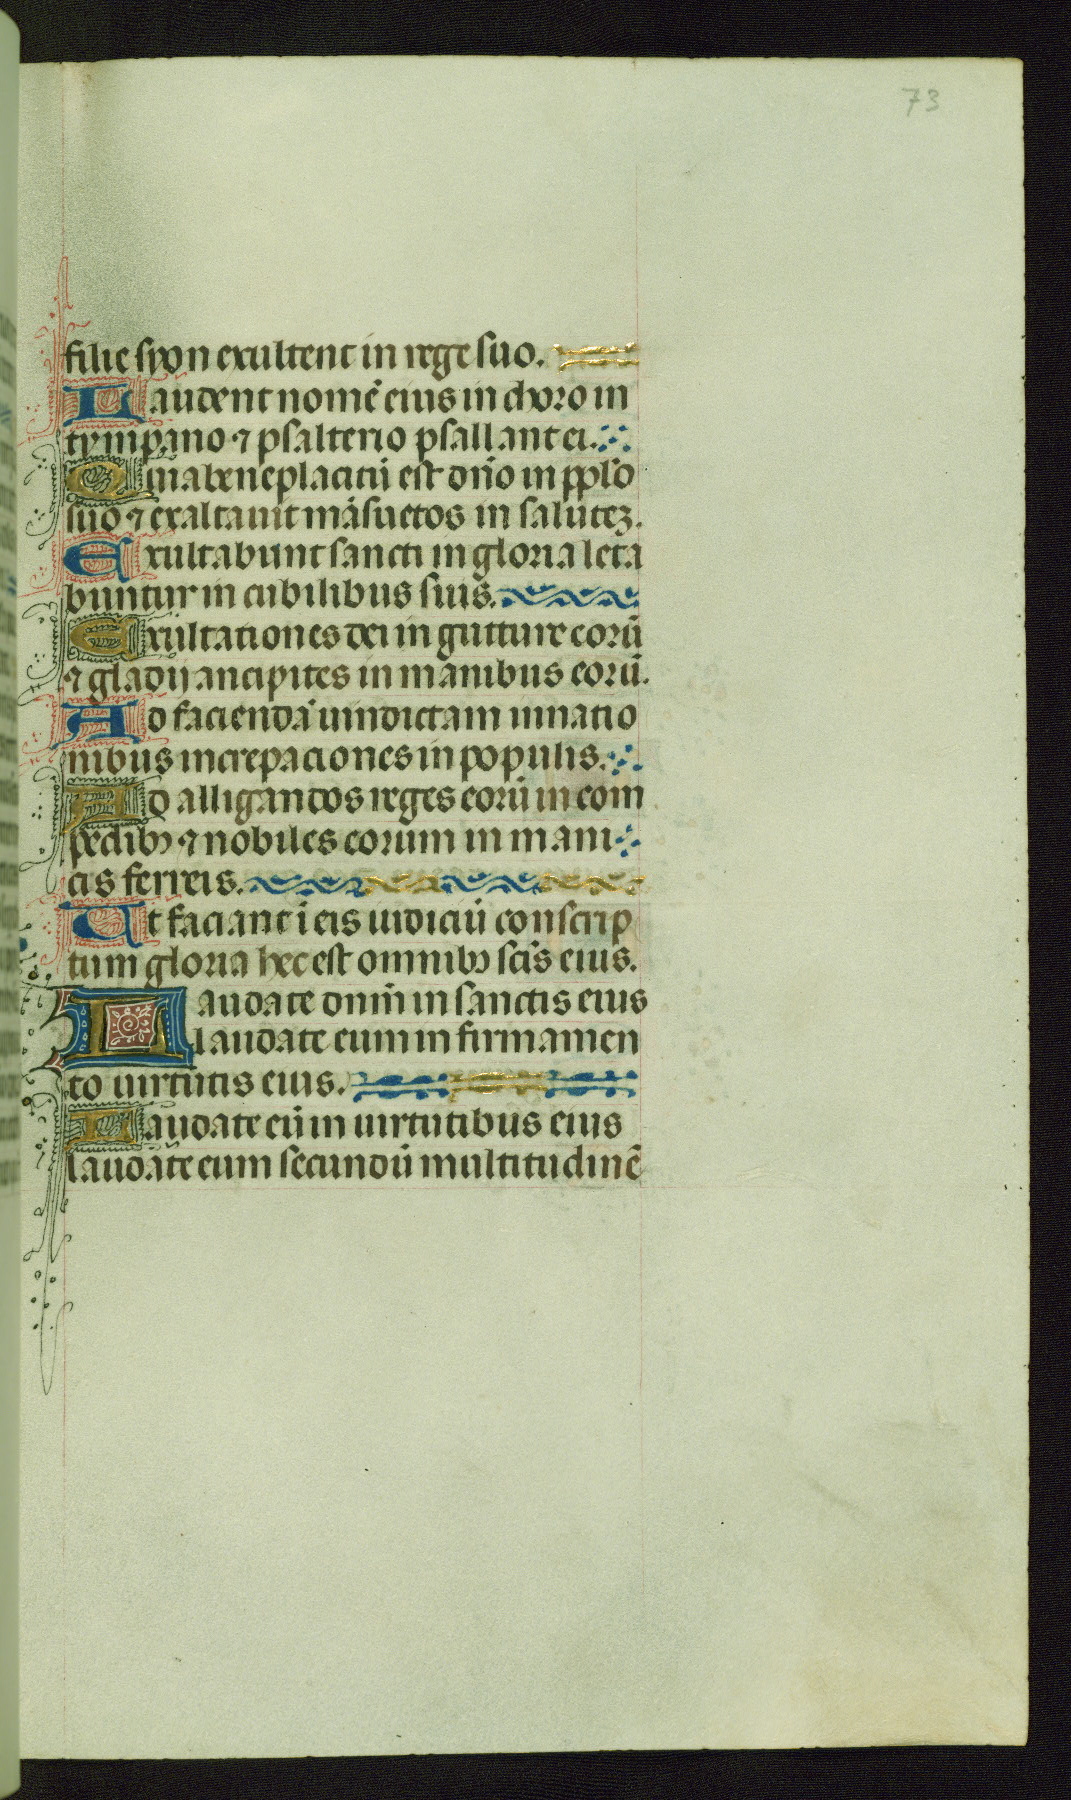 73
filie syon exultent in rege suo.
Laudent nomē eius in choro in
tympano ⁊ psalterio psallant ei.
Quia beneplacitū est dn̄o in pp̄lo
suo ⁊ exaltauit māsuetos in salutēꝫ.
Exultabunt sancti in gloria leta
buntur in cubilibus suis.
Exultationes dei in gutture eorū
⁊ gladij ancipites in manibus eorū.
Ad faciendā uindictam in natio
nibus increpaciones in populis.
Ad alligandos reges eorū in com
pedibꝫ ⁊ nobiles eorum in mani
cis ferreis.
Ut faciant ī eis iudiciū conscrip
tum gloria hec est omnibꝫ scīs eius.
Laudate dnm̄ in sanctis eius
laudate eum in firmamen
to uirtutis eius.
Laudate eū in uirtutibus eius
laudate eum secundū multitudinē